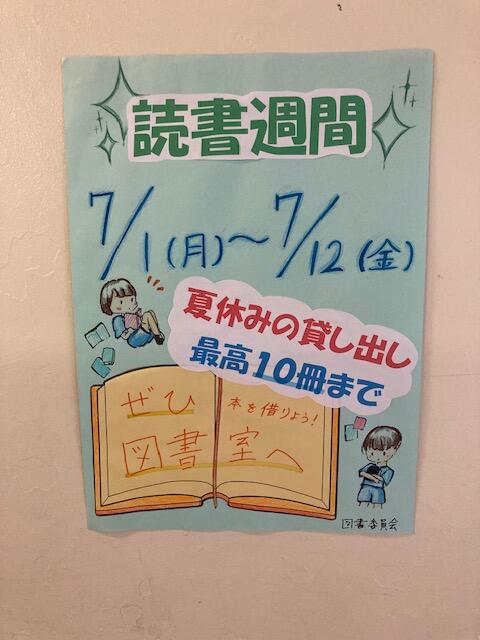 読書週間
7/1(月)〜7/12(金)
夏休みの貸し出し
最高10冊まで
ぜひ
本を借りよう!
図書室へ
図書委員会